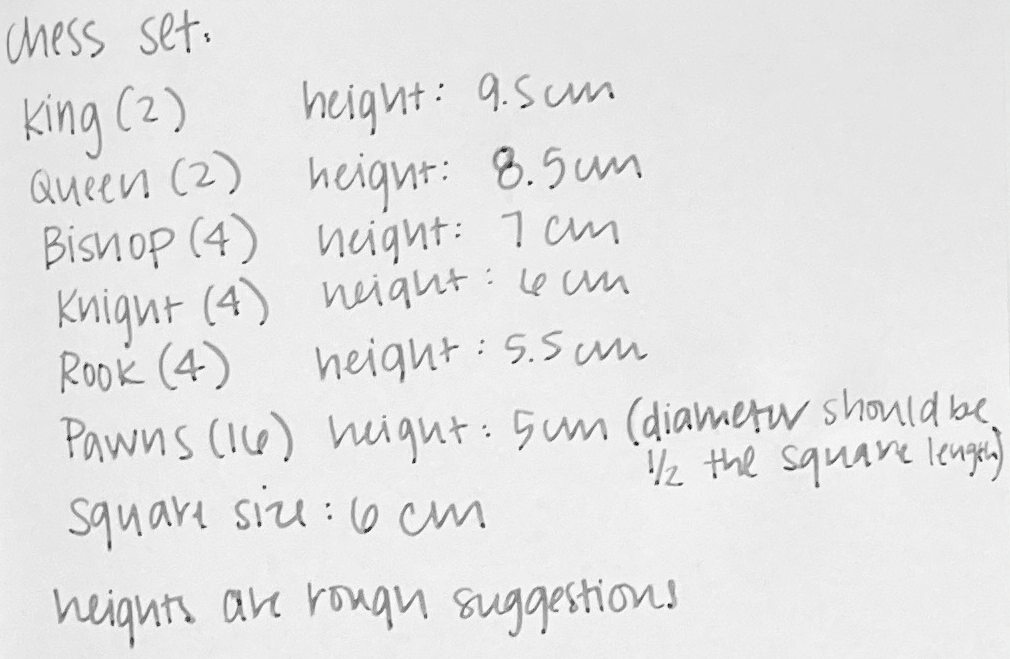 chess set:
King (2) height: 9.5cm
Queen (2) height: 8.5cm
Bishop (4) height: 7 cm
Knight (4) height: 6 cm
Rook (4) height: 5.5 cm
Pawns (16) height: 5cm (diameter should be
1/2 the square length)
square size: 6 cm
heights are rough suggestions